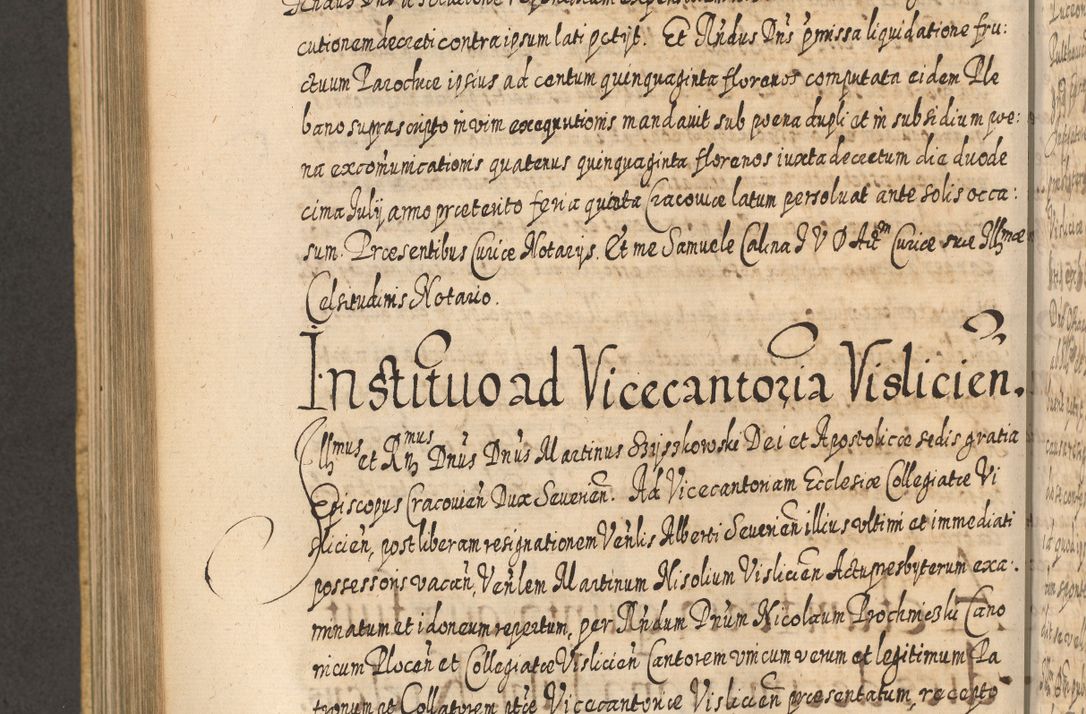 cutionem decreti contra ipsum lati petijt. Et Rndus Dns pmissa liquidatione fru:
ctuum Parochiæ ipsius ad centum quinquaginta florenos computata eidem Ple
bano suprascripto in vim exequutionis mandauit sub poena dupli et in subsidium poe:
na excomunicationis quatenus quinquaginta florenos iuxta decretum die duode
cima Iulij anno præterito feria quinta Cracouiæ latum persoluat ante solis occa:
sum. Præsentibus Curiæ Notarijs. Et me Samuele Calina I V D Actm Curiæ suæ Illmæ
Celsitudinis Notario.
Institutio ad Vicecantoria Vislicien.
Illmus et Rmus Dnus Dnus Martinus Szyszkowski Dei et Apostolicæ sedis gratia
Episcopus Cracovien Dux Severien. Ad Vicecantoriam Ecclesiæ Collegiatæ Vi
slicien, post liberam resignationem Venlis Alberti Severien illius ultimi et immediati
possessoris vacan, Venlem Martinum Nisolium Vislicien Actu presbyterum exa:
minatum et idoneum repertum, per Rndum Dnum Nicolaum Prochniczki Cano
nicum Plocen et Collegiatæ Vislicien Cantorem unicum verum et legitimum Pa
tronum et Collatorem ptæ Vicecantoriæ Vislicien præsentatum, recepto